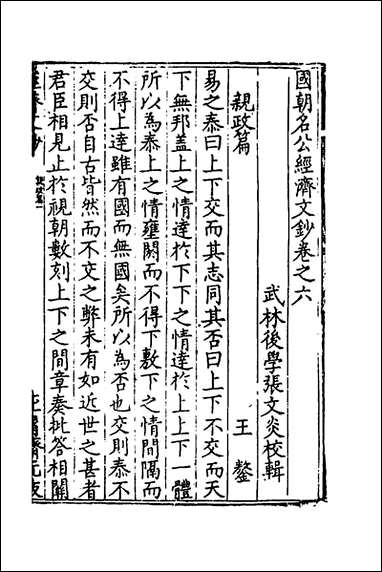 國朝名公經濟文鈔卷之六
武林後學張文炎校輯
親政篇 王鏊
易之泰曰上下交而其志同其否曰上下不交而天
下無邦盖上之情達於下下之情達於上上下一體
所以為泰上之情壅閼而不得下敷下之情間隔而
不得上達雖有國而無國矣所以為否也交則泰不
交則否自古皆然而不交之弊未有如近世之甚者
君臣相見止於視朝數刻上下之間章奏批答相關